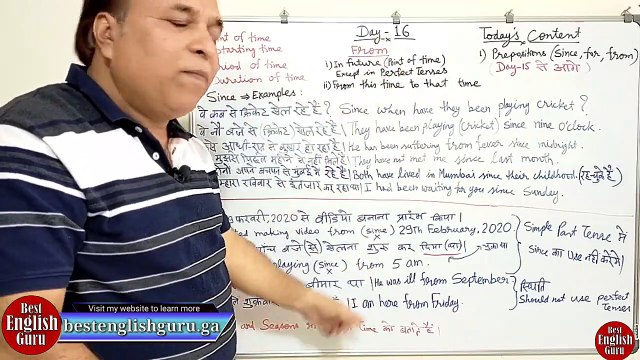 Point of time
Starting time
Period of time
Duration of time
Day - 16
From
i) In future (Point of time)
Except in Perfect Tenses
ii) From this time to that time
Today's Content
1) Prepositions (Since, for, from)
Day-15 से आगे
Since ⇒ Examples:
वे कब से क्रिकेट खेल रहे हैं? Since when have they been playing cricket?
वे नौ बजे से क्रिकेट खेल रहे हैं। They have been playing (cricket) since nine o'clock.
उसे आधी रात से बुखार आ रहा है। He has been suffering from fever since midnight.
वे मुझसे पिछले महीने से नहीं मिले हैं। They have not met me since last month.
दोनों अपने बचपन से मुंबई में रहे हैं। Both have lived in Mumbai since their childhood. (रह चुके हैं)
तुम्हारा रविवार से इंतजार कर रहा था। I had been waiting for you since Sunday.
फरवरी, 2020 से वीडियो बनाना प्रारंभ किया।
making video from (since ×) 29th February, 2020
पांच बजे (से) खेलना शुरू कर दिया (था)। चुका था
playing (since ×) from 5 am.
Simple Past Tense में
Since का Use नहीं करेंगे।
बीमार था। He was ill from September
I am here from Friday.
स्थिति
Should not use perfect tenses
and Seasons Time को बताते हैं।
Best English Guru
Visit my website to learn more
bestenglishguru.ga
Best English Guru